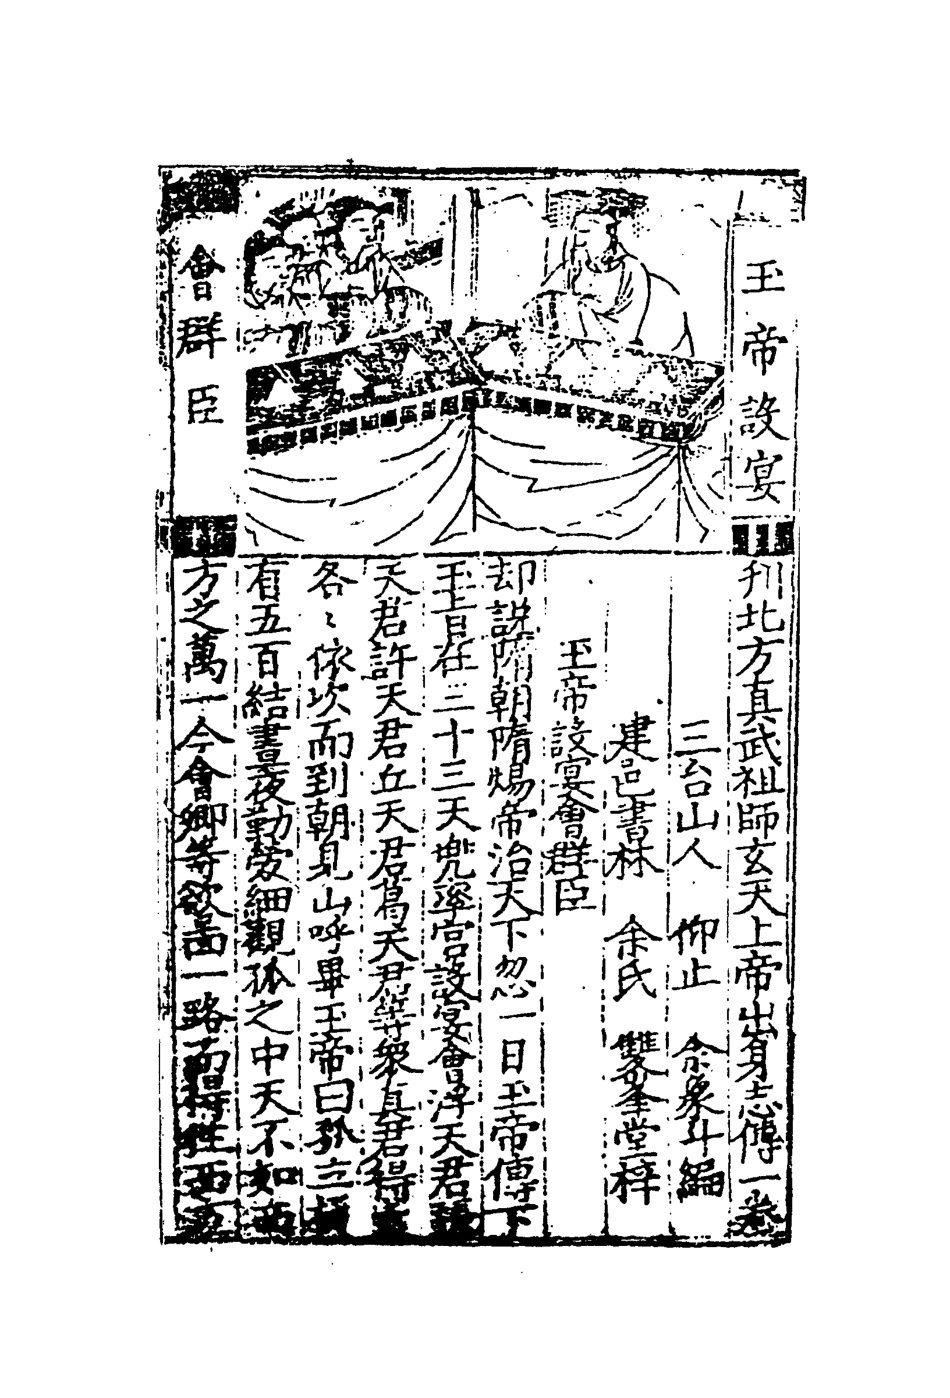 玉帝設宴
會群臣
刋北方真武祖師玄天上帝出身志傳一卷
三台山人　仰止　余象斗編
建邑書林　余氏　雙峯堂梓
玉帝設宴會群臣
却說隋朝隋煬帝治天下忽一日玉帝傳下
玉旨在三十三天兜率宮設宴會浮天君
天君許天君丘天君葛天君等衆真君得
各〻依次而到朝見山呼畢玉帝曰孤立
有五百結晝夜勤勞細觀孤之中天不如西
方之萬一今會卿等欲畨一路